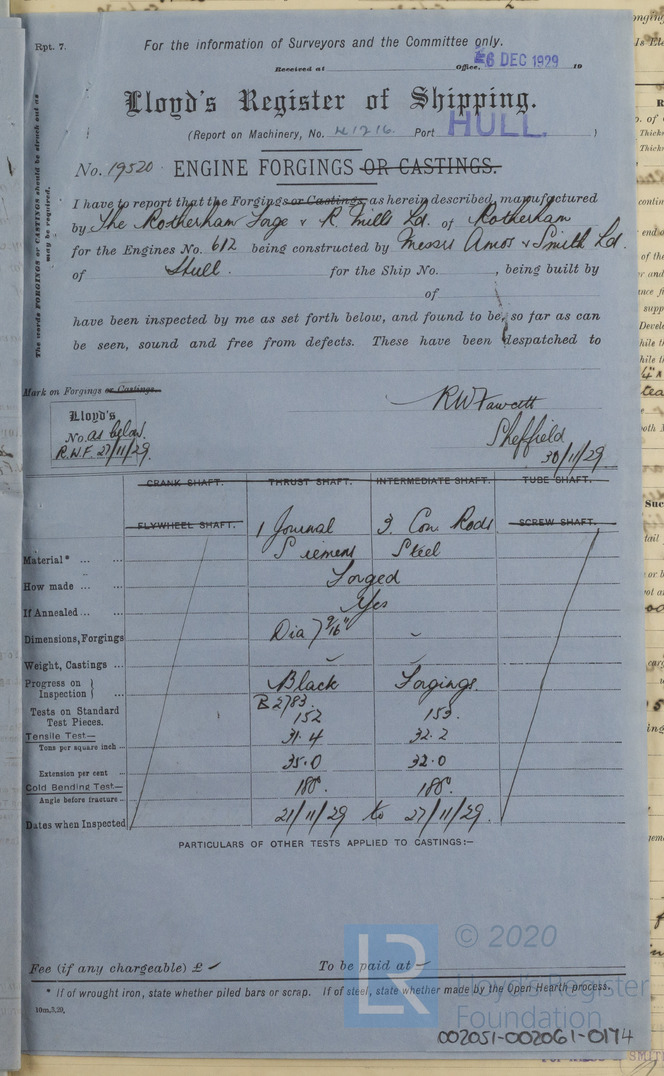 Rpt. 7.
For the information of Surveyors and the Committee only.
Received at Office, 6 DEC 1929 19
Lloyd's Register of Shipping.
(Report on Machinery, No. 41216. Port HULL. )
No. 19520 ENGINE FORGINGS OR CASTINGS.
The words FORGINGS or CASTINGS should be struck out as may be required.
I have to report that the Forgings or Castings, as herein described, manufactured
by The Rotherham Forge & R. Mills Ld. of Rotherham
for the Engines No. 612 being constructed by Messrs Amos & Smith Ld.
of Hull. for the Ship No. , being built by
of
have been inspected by me as set forth below, and found to be, so far as can
be seen, sound and free from defects. These have been despatched to
Mark on Forgings or Castings.
Lloyd's
No. as below.
R.W.F. 27/11/29.
RW Fawcett
Sheffield
30/11/29.
CRANK SHAFT. THRUST SHAFT. INTERMEDIATE SHAFT. TUBE SHAFT.
FLYWHEEL SHAFT. 1 Journal 3. Con. Rods SCREW SHAFT.
Material* ... ... Siemens Steel
How made ... ... Forged
If Annealed ... ... Yes
Dimensions, Forgings Dia 7 9/16"
Weight, Castings ...
Progress on Inspection } ... Black Forgings.
B 2783.
Tests on Standard Test Pieces. 152 153.
Tensile Test—
Tons per square inch ... 31.4 32.2
Extension per cent ... 35.0 32.0
Cold Bending Test—
Angle before fracture ... 180°. 180°.
Dates when Inspected 21/11/29 to 27/11/29.
PARTICULARS OF OTHER TESTS APPLIED TO CASTINGS:—
Fee (if any chargeable) £ To be paid at
* If of wrought iron, state whether piled bars or scrap. If of steel, state whether made by the Open Hearth process.
10m,3,29.
© 2020
LR
Lloyd's Register
Foundation
002051-002061-0174